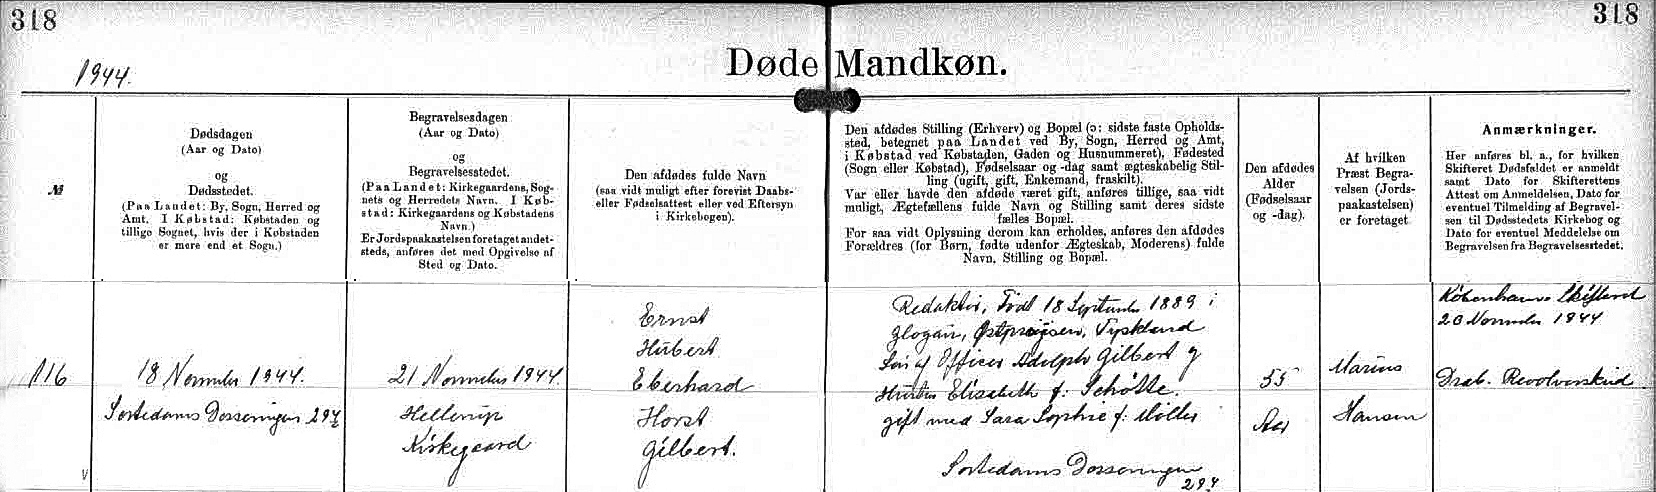 318
318
1944.
Døde Mandkøn.
№
Dødsdagen
(Aar og Dato)
og
Dødsstedet.
(Paa Landet: By, Sogn, Herred og
Amt. I Købstad: Købstaden og
tillige Sognet, hvis der i Købstaden
er mere end et Sogn.)
Begravelsesdagen
(Aar og Dato)
og
Begravelsesstedet.
(Paa Landet: Kirkegaardens, Sog-
nets og Herredets Navn. I Køb-
stad: Kirkegaardens og Købstadens
Navn.)
Er Jordspaakastelsen foretaget andet-
steds, anføres det med Opgivelse af
Sted og Dato.
Den afdødes fulde Navn
(saa vidt muligt efter forevist Daabs-
eller Fødselsattest eller ved Eftersyn
i Kirkebogen).
Den afdødes Stilling (Erhverv) og Bopæl (ɔ: sidste faste Opholds-
sted, betegnet paa Landet ved By, Sogn, Herred og Amt,
i Købstad ved Købstaden, Gaden og Husnummeret), Fødested
(Sogn eller Købstad), Fødselsaar og -dag samt ægteskabelig Stil-
ling (ugift, gift, Enkemand, fraskilt).
Var eller havde den afdøde været gift, anføres tillige, saa vidt
muligt, Ægtefællens fulde Navn og Stilling samt deres sidste
fælles Bopæl.
For saa vidt Oplysning derom kan erholdes, anføres den afdødes
Forældres (for Børn, fødte udenfor Ægteskab, Moderens) fulde
Navn, Stilling og Bopæl.
Den afdødes
Alder
(Fødselsaar
og -dag).
Af hvilken
Præst Begra-
velsen (Jords-
paakastelsen)
er foretaget
Anmærkninger.
Her anføres bl. a., for hvilken
Skifteret Dødsfaldet er anmeldt
samt Dato for Skifterettens
Attest om Anmeldelsen, Dato for
eventuel Tilmelding af Begravel-
sen til Dødsstedets Kirkebog og
Dato for eventuel Meddelelse om
Begravelsen fra Begravelsesstedet.
116
18 November 1944.
Sortedams Dosseringen
21 November 1944.
Hellerup
Kirkegaard
Ernst
Hubert
Eberhard
Horst
Gilbert.
Redaktør, Født 18 September 1889 i
Glogau, Østprøjsen, Tyskland
Søn af Officer Adolph Gilbert og
Hustru Elisabeth f: Schøtte.
gift med Sara Sophie f: Møller
Sortedams Dosseringen
55
Aar
Marius
Hansen
Københavns Skifteret
20 November 1944
Dræb. Revolverskud